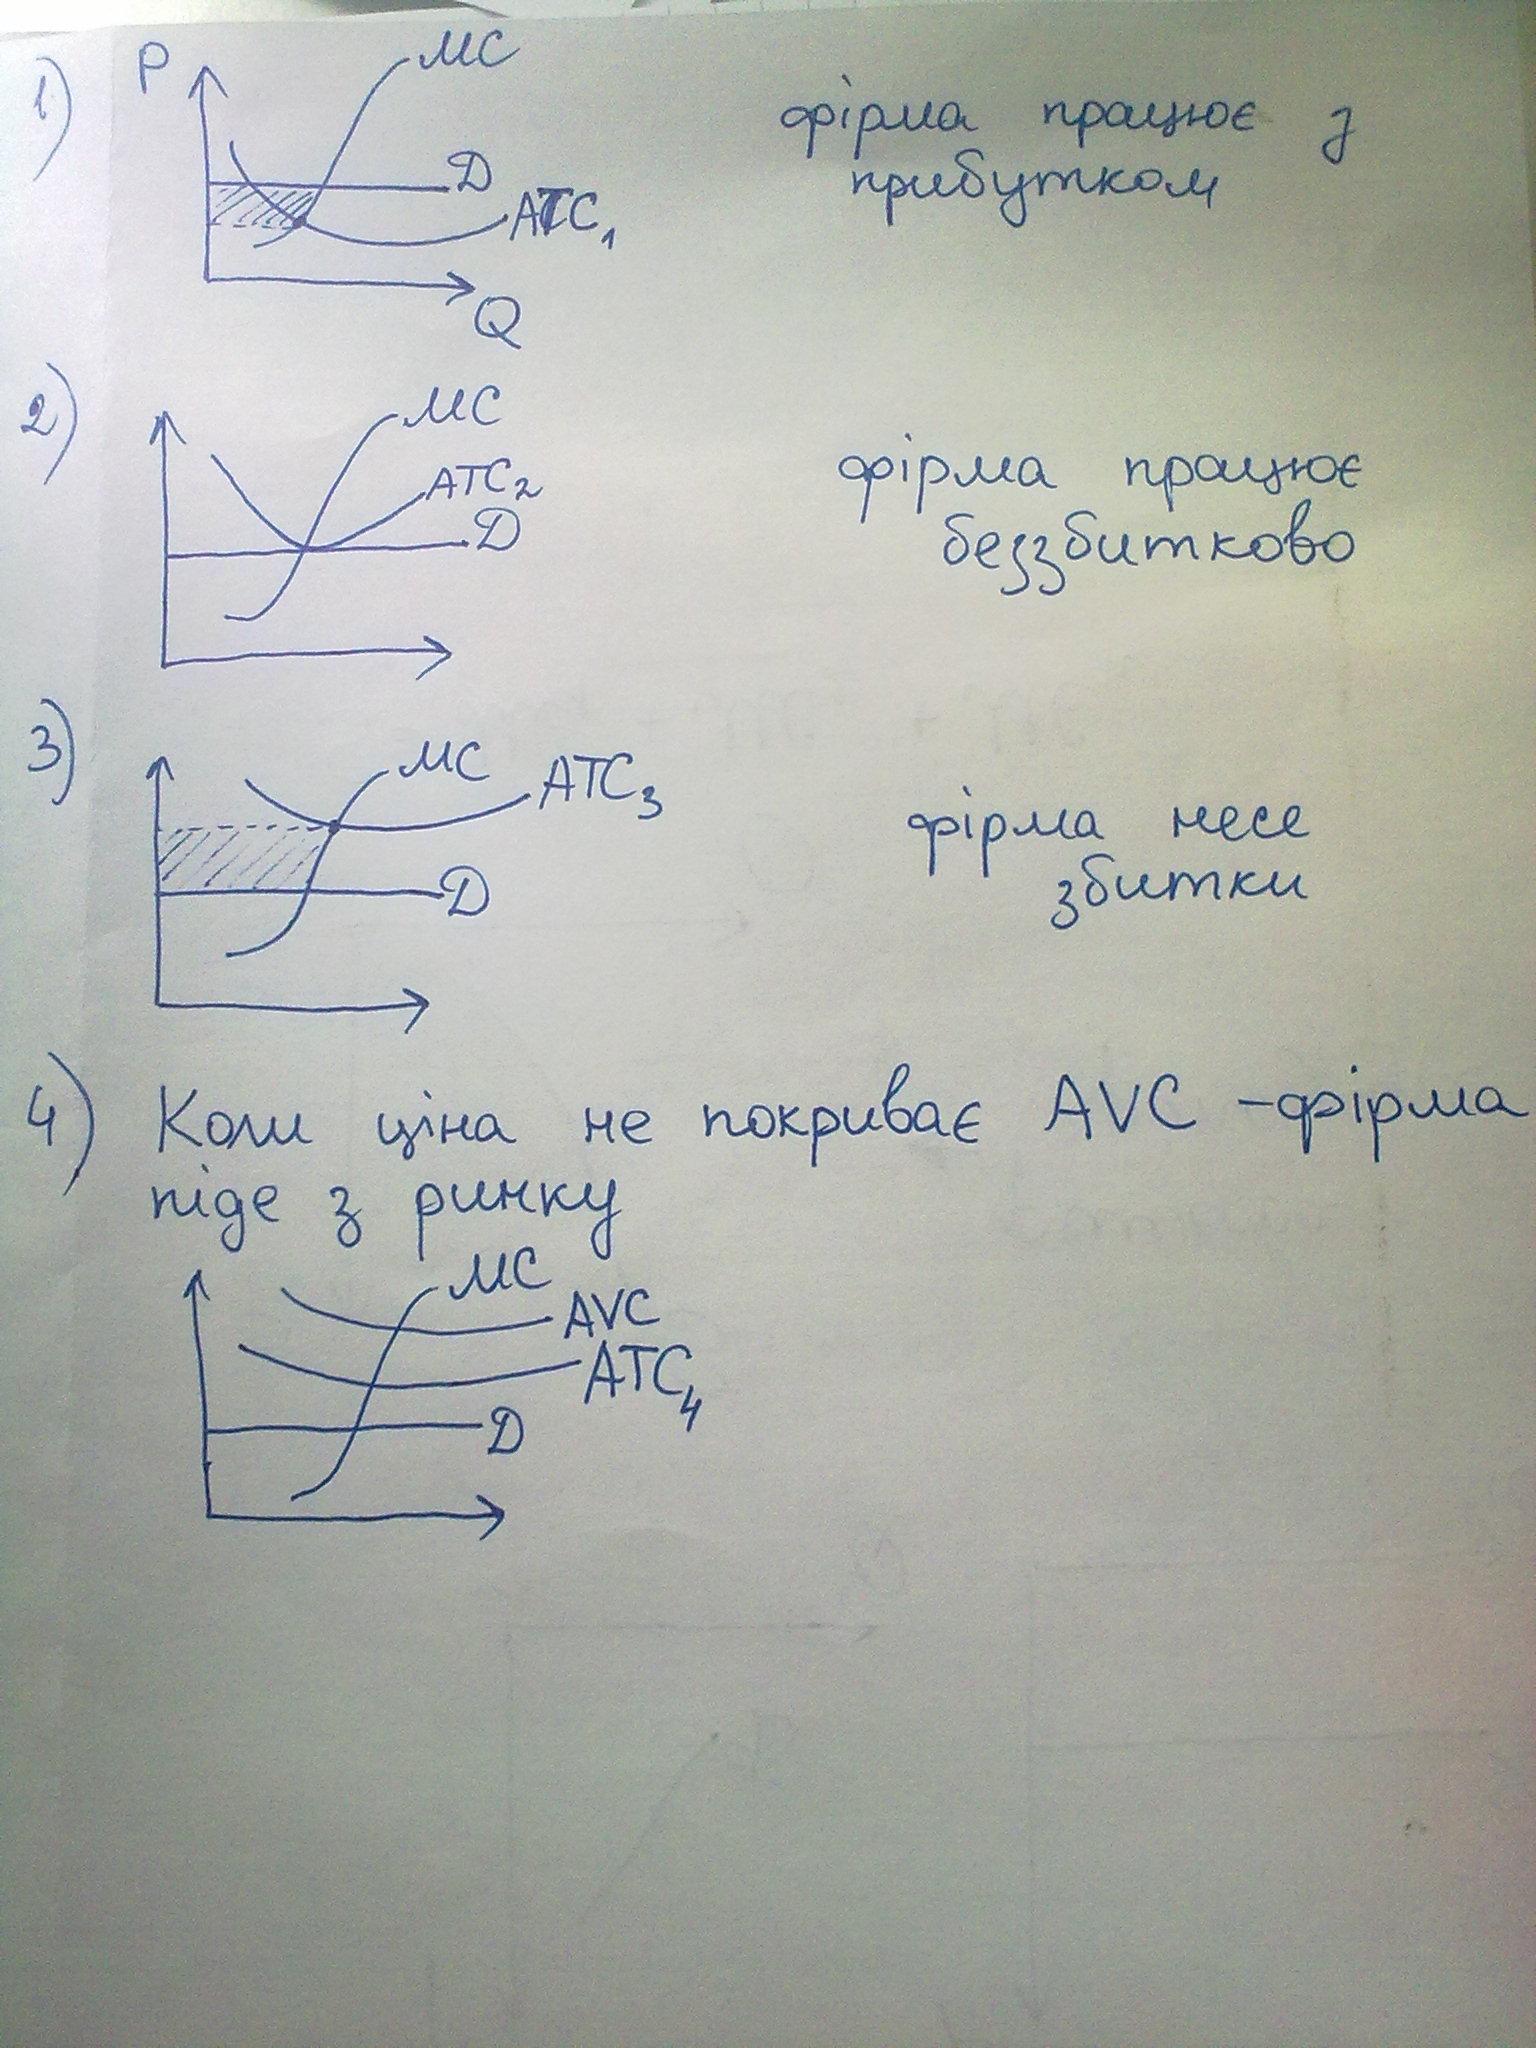 1)
P
MC
D
ATC1
Q
фірма працює з
прибутком
2)
MC
ATC2
D
фірма працює
беззбитково
3)
MC
ATC3
D
фірма несе
збитки
4) Коли ціна не покриває AVC - фірма
піде з ринку
MC
AVC
ATC4
D